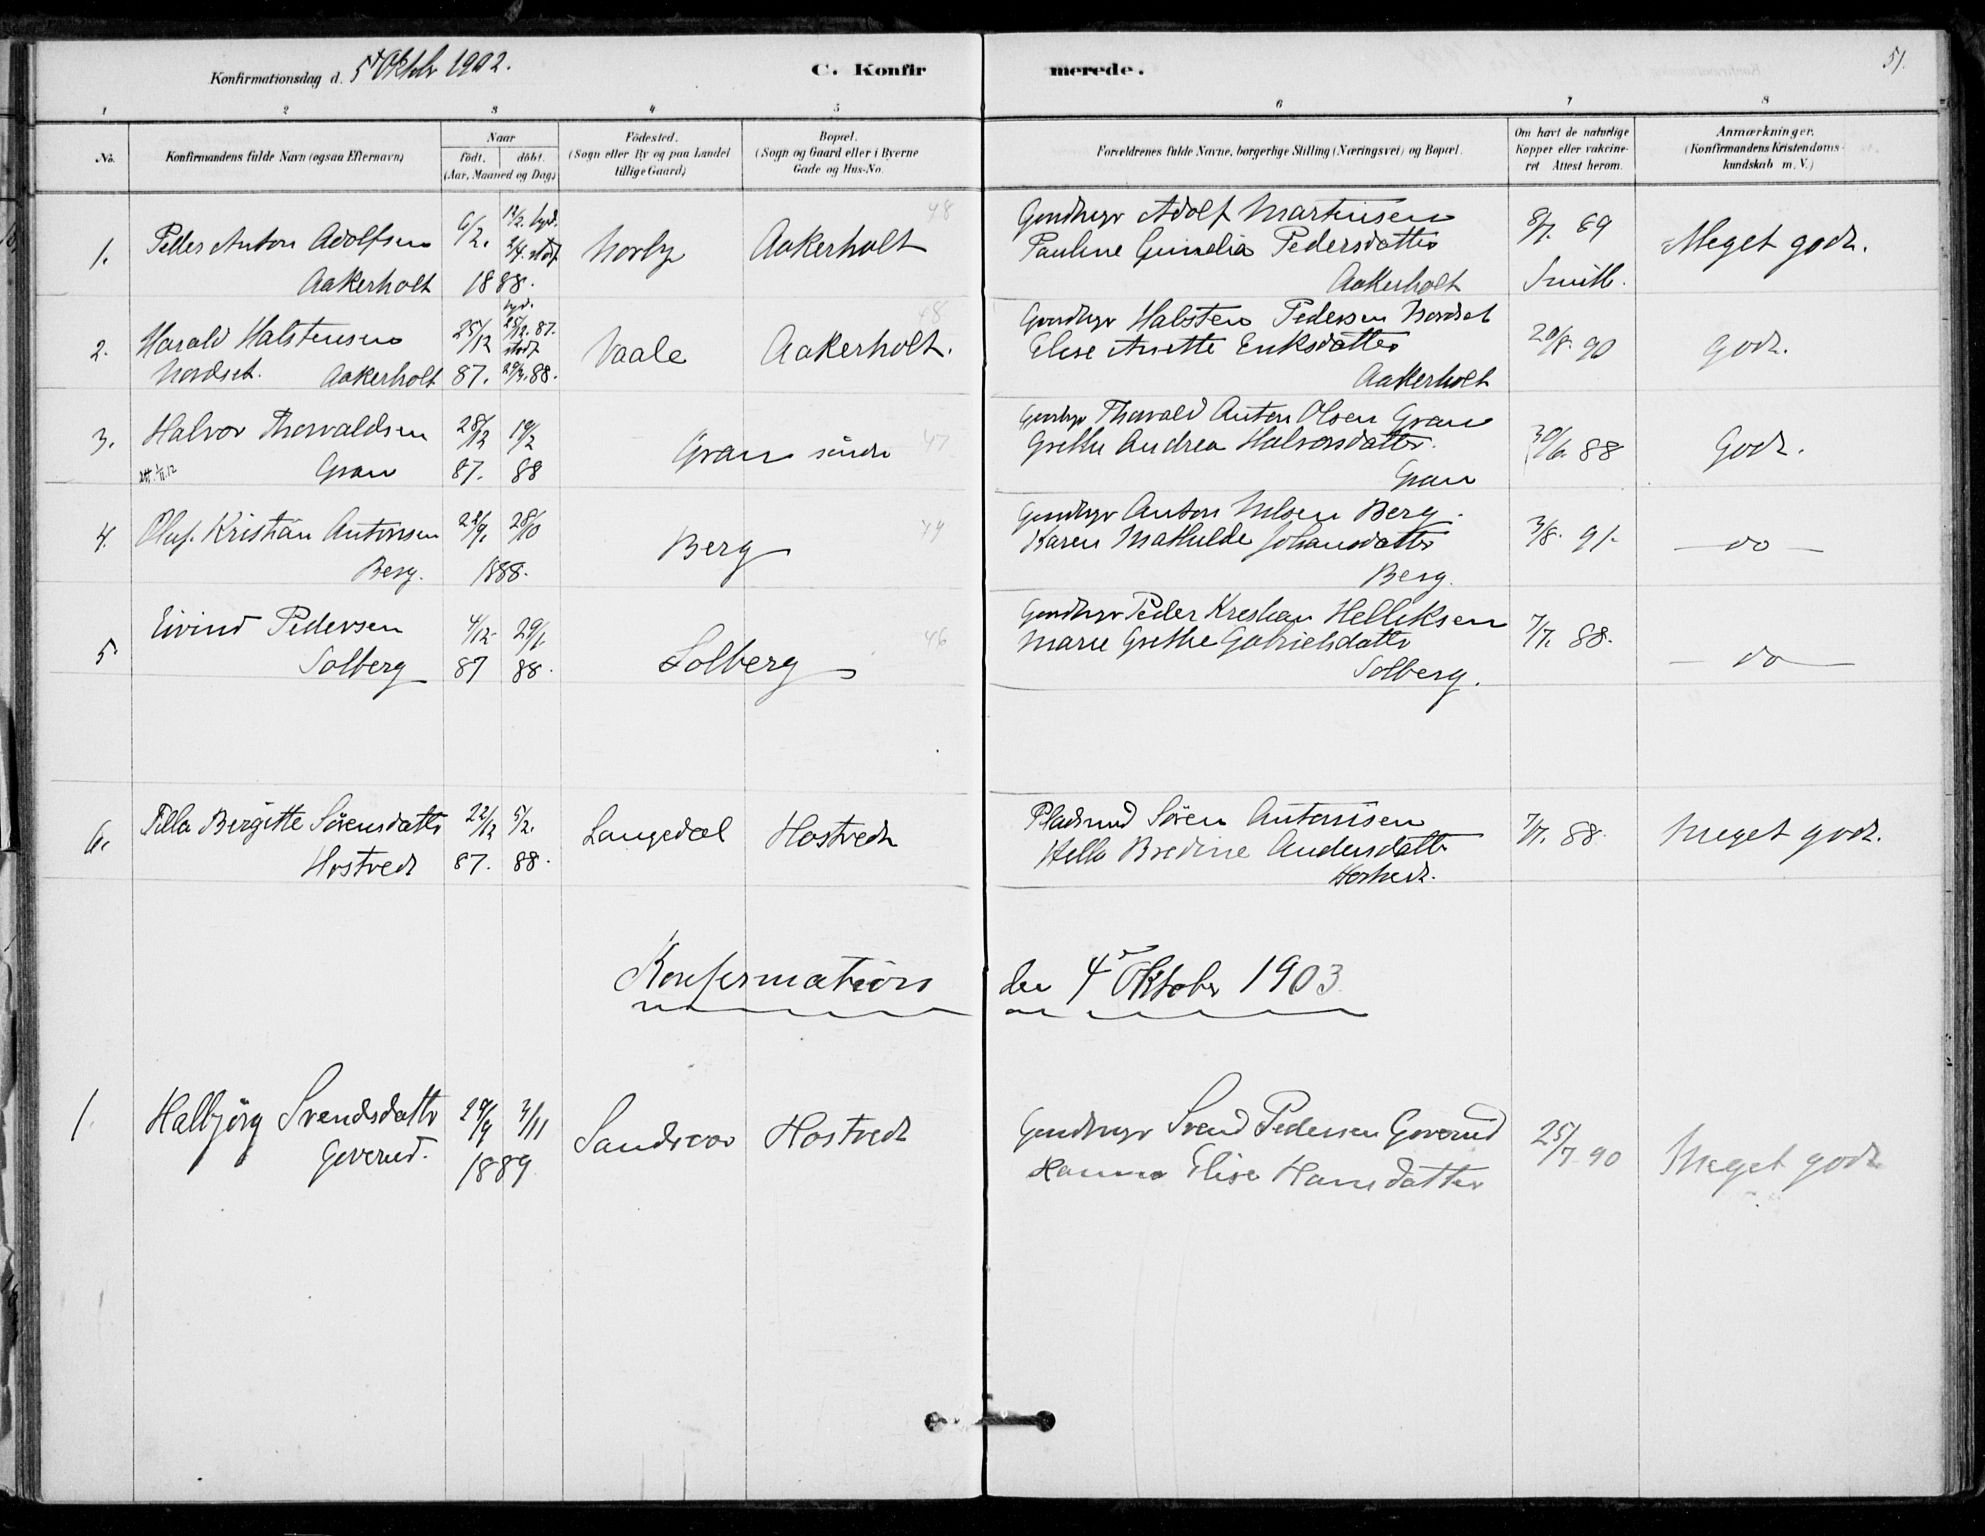 Konfirmationsdag d. 5t Oktobr 1902.
C. Konfir merede.
51.
1 2 3 4 5 6 7 8
No.
Konfirmandens fulde Navn (ogsaa Efternavn)
Naar
födt. döbt.
(Aar, Maaned og Dag)
Födested.
(Sogn eller By og paa Landet
tillige Gaard)
Bopæl.
(Sogn og Gaard eller i Byerne
Gade og Hus-No.
Forældrenes fulde Navne, borgerlige Stilling (Næringsvei) og Bopæl.
Om havt de naturlige
Kopper eller vakcine-
ret Attest herom.
Anmærkninger.
(Konfirmandens Kristendoms-
kundskab m. V.)
1.
Peder Anton Adolfsen
Aakerholt
6/2.
1888.
Norby
Aakerholt
48
Gaardbruger Adolf Martinsen
Pauline Pedersdatter
Aakerholt
8/7. 89
Smith.
Meget godt.
2.
Harald Halstensen
Nordset. Aakerholt
25/12
87.
25/12. 87.
29/3. 88.
Vaale
Aakerholt.
48
Halsten Pedersen Nordset
Elise Anette Eriksdatter
Aakerholt
20/8. 90
Godt.
3.
Halvor Thorvaldsen
Gran
28/12
87.
19/2
88
Gran söndre
47
Thorvald Anton Olsen Gran
Grethe Andrea Halvorsdatter.
Gran
30/6. 88
Godt.
4.
Oluf Kristian Antonsen
Berg.
28/10
1888.
Berg
Anton Nilsen Berg.
Karen Mathilde Johansdatter
Berg.
3/8. 91.
— do —
5
Eivind Pedersen
Solberg
4/12.
87
29/1.
88.
Solberg
46
Peder Kristian Helliksen
Marie Grethe Gabrielsdatter
Solberg.
7/7. 88.
— do —
6.
Birgitte Sörensdatter
Hostvedt
22/12
87.
5/2.
88.
Langedal
Hostvedt
Sören Antonsen
Bredine Andersdatter
Hostvedt.
7/7. 88.
Meget godt.
Konfirmation den 4de Oktober 1903
1.
Halbjörg Svendsdatter
Goverud.
29/9
3/11
1889
Hostvedt
Svend Pedersen Goverud
Hanna Elise Hansdatter
25/7 90
Meget godt